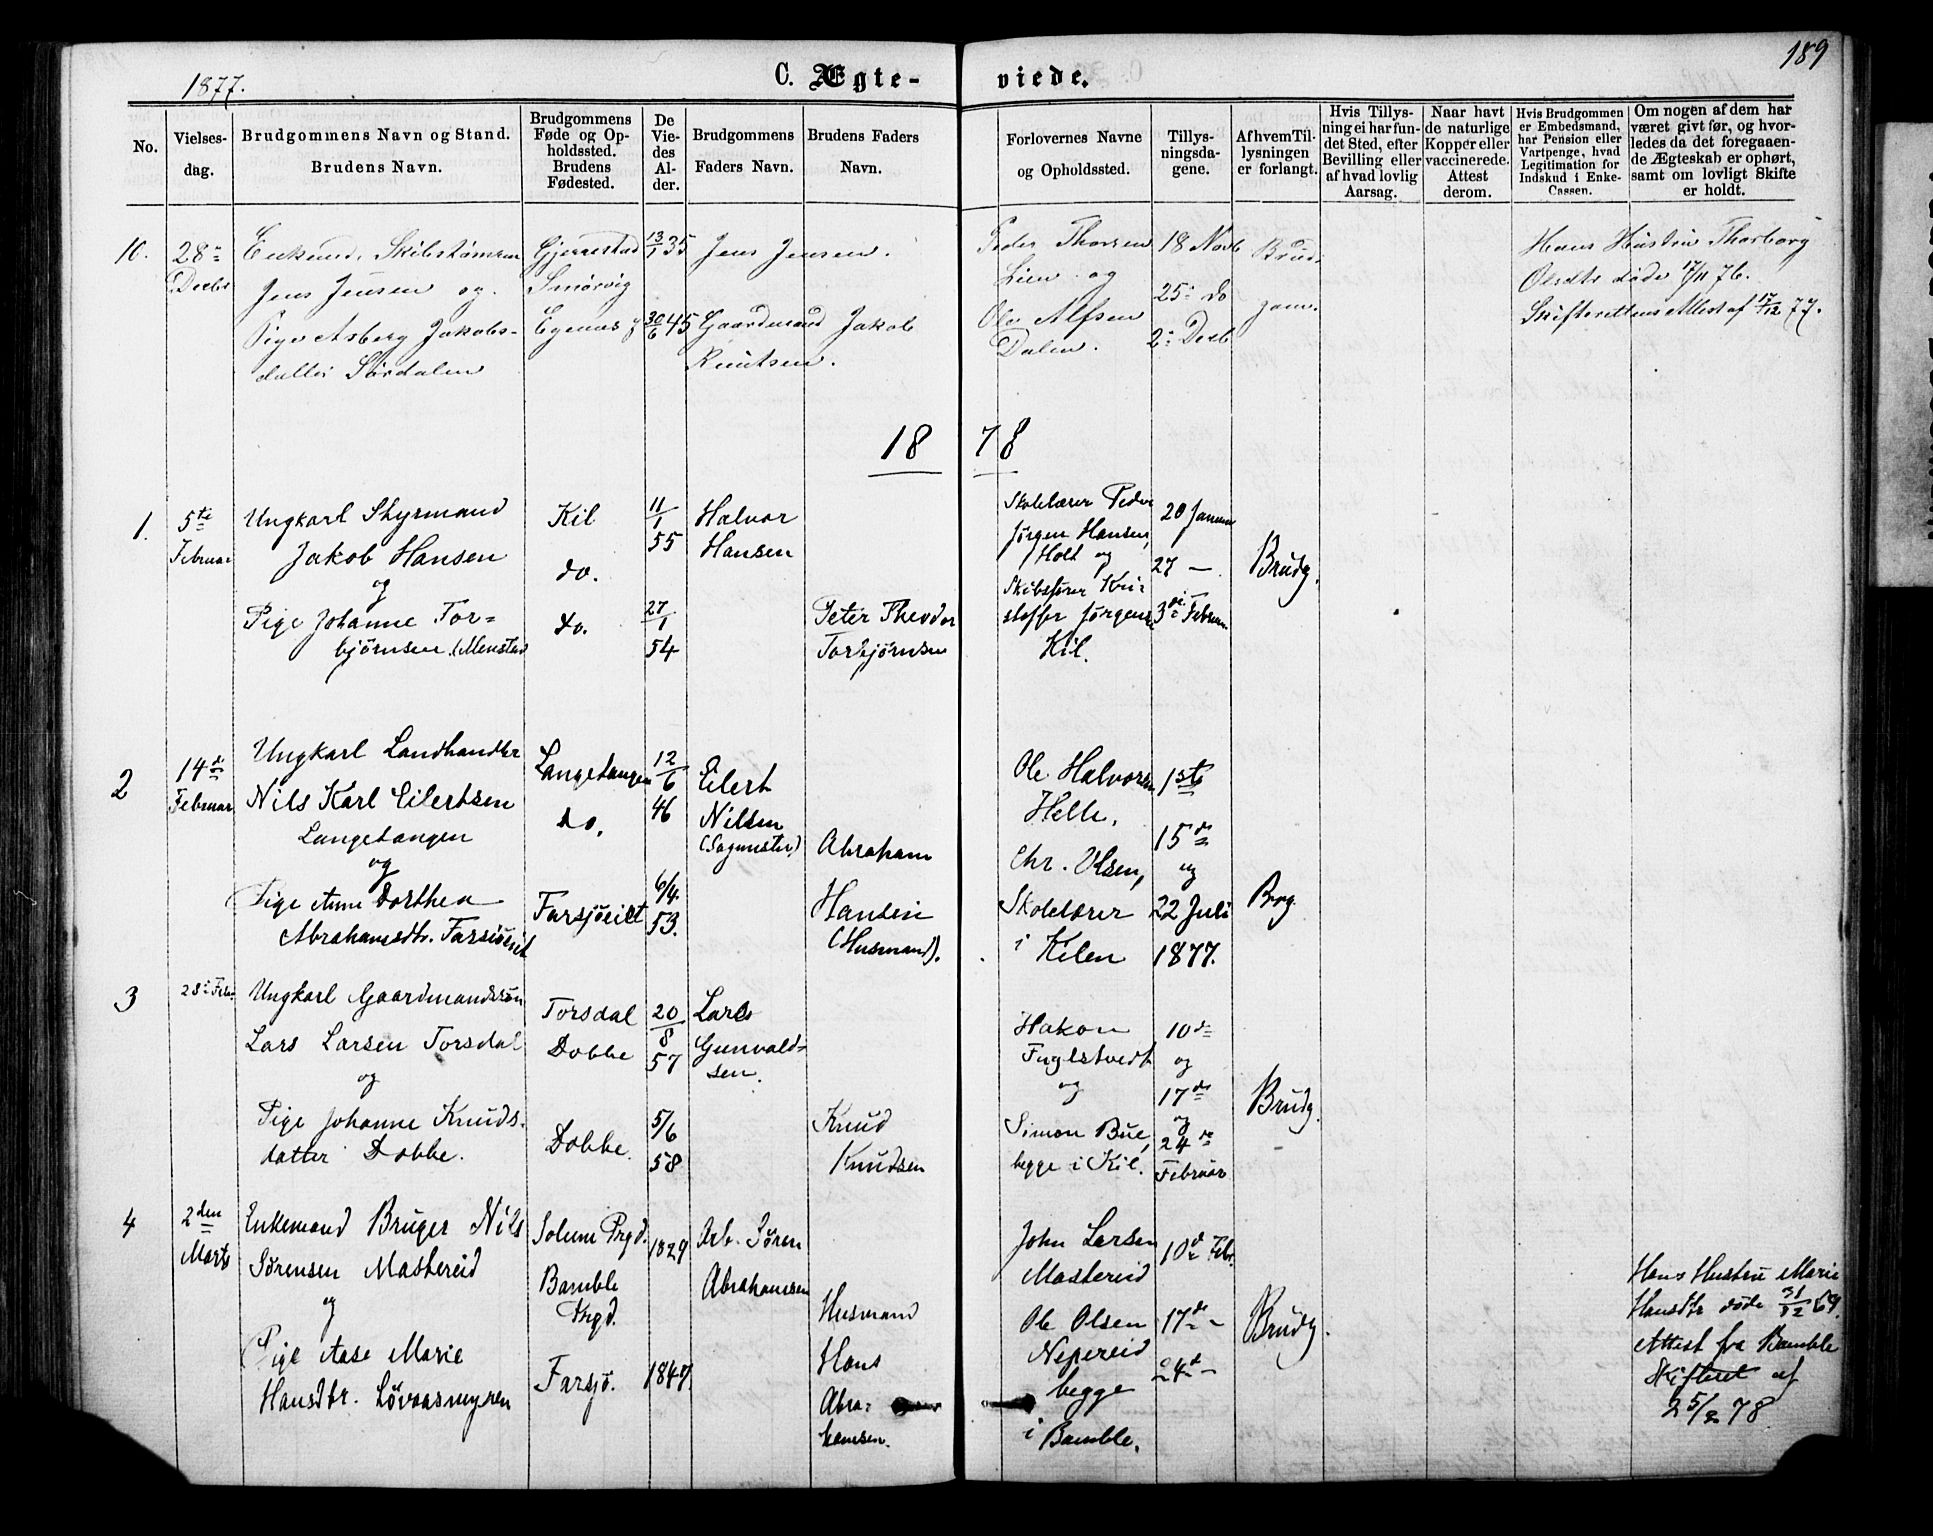 1877.
C. Ægte-
viede.
189
No.
Vielses-
dag.
Brudgommens Navn og Stand.
Brudens Navn.
Brudgommens
Føde og Op-
holdssted.
Brudens
Fødested.
De
Vie-
des
Al-
der.
Brudgommens
Faders Navn.
Brudens Faders
Navn.
Forlovernes Navne
og Opholdssted.
Tillys-
ningsda-
gene.
Af hvem Til-
lysningen
er forlangt.
Hvis Tillys-
ning ei har fun-
det Sted, efter
Bevilling eller
af hvad lovlig
Aarsag.
Naar havt
de naturlige
Kopper eller
vaccinerede.
Attest
derom.
Hvis Brudgommen
er Embedsmand,
har Pension eller
Vartpenge, hvad
Legitimation for
Indskud i Enke-
Cassen.
Om nogen af dem har
været givt før, og hvor-
ledes da det foregaaen-
de Ægteskab er ophørt,
samt om lovligt Skifte
er holdt.
10.
28de
Decbr
Enkemd. Skibstømrm
Jens Jensen og
Pige Asberg Jakobs-
datter Sørdalen
Gjerrestad
Smørvig
Egenæs
13/1 35
30/6 45
Jens Jensen.
Gaardmand Jakob
Knutsen.
Peder Thorsen
Lien og
Ole Alfsen
Dalen.
18 Novb
25de do
2de Decb
Brud-
gom.
Hans Hustru Thorborg
Olsdtr døde 17/11 76.
Skifterettens Attest af 17/12 77.
1878
1.
5te
Februar
Ungkarl Styrmand
Jakob Hansen
og
Pige Johanne Tor=
bjørnsen (Menstad
Kil
do.
do.
11/1
55
27/1
54
Halvor
Hansen
Peter Theodor
Torbjørnsen
Skolelærer Peder
Jørgen Hansen,
Holt og
Skibsfører Kri-
stoffer Jørgensen
Kil.
20 Januar
27 —
3die Februar
Brudg.
2
14de
Februar
Ungkarl Landhandler
Nils Karl Eilertsen
Langetangen
og
Pige Anne Dorthea
Abrahamsdtr. Farsjøeiet
Langetangen
do.
Farsjøeiet
12/6
46
6/4.
53.
Eilert
Nilsen
(Sagmester)
Abraham
Hansen
(Husmand).
Ole Halvorsen
Helle,
Chr. Olsen,
Skolelærer
i Kilen
1ste
15de
og
22 Juli
1877.
Brg.
3
28de Febr
Ungkarl Gaardmandssøn
Lars Larsen Torsdal
og
Pige Johanne Knuds-
datter Dobbe.
Torsdal
Dobbe
Dobbe.
20/8
57
5/6
58
Lars
Gunvald=
sen.
Knud
Knudsen
Hakon
Fuglstvedt
og
Simon Bue,
begge i Kil.
10de
og
17de
og
24de
Februar
Brudg.
4
2den
Marts
Enkemand Bruger Nils
Sørensen Mastereid
og
Pige Aase Marie
Hansdtr. Løvaasmyren
Solum Prgd.
Bamble
Prgd.
Farsjø.
1829
1847.
Arb. Søren
Abrahamsen
Husmand
Hans
Abra-
hamsen.
John Larsen
Mastereid
Ole Olsen
Nepereid
begge
i Bamble.
10de Febr.
17de -
24de -
Brudg.
Hans Hustru Marie
Hansdtr døde 31/12 69.
Attest fra Bamble
Skifteret af
25/2 78